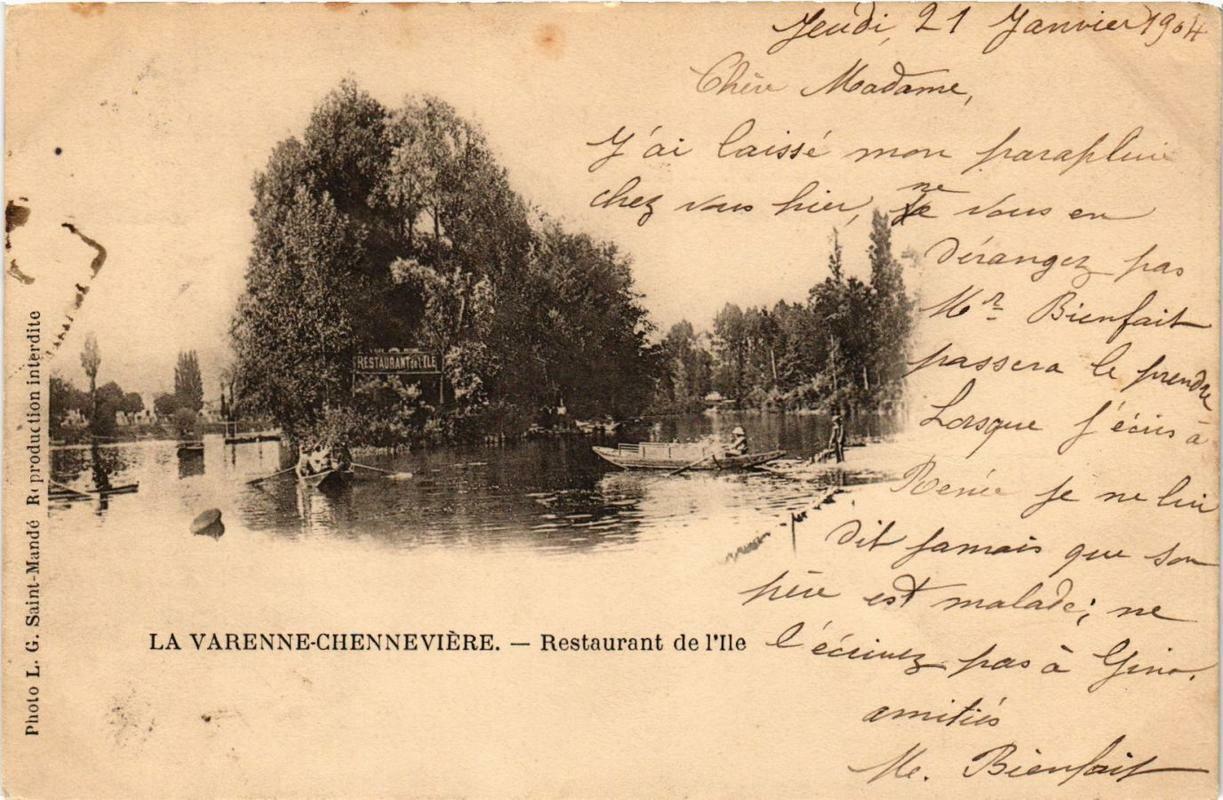 Jeudi, 21 Janvier 1904
Chère Madame,
J'ai laissé mon parapluie
chez vous hier, ne vous en
dérangez pas
Mr Bienfait
passera le prendre
Lorsque j'écris à
Renée je ne lui
dit jamais que son
père est malade; ne
l'écrivez pas à Gino.
amitiés
Me. Bienfait
RESTAURANT DE L'ILE
LA VARENNE-CHENNEVIÈRE. — Restaurant de l'Ile
Photo L. G. Saint-Mandé Reproduction interdite